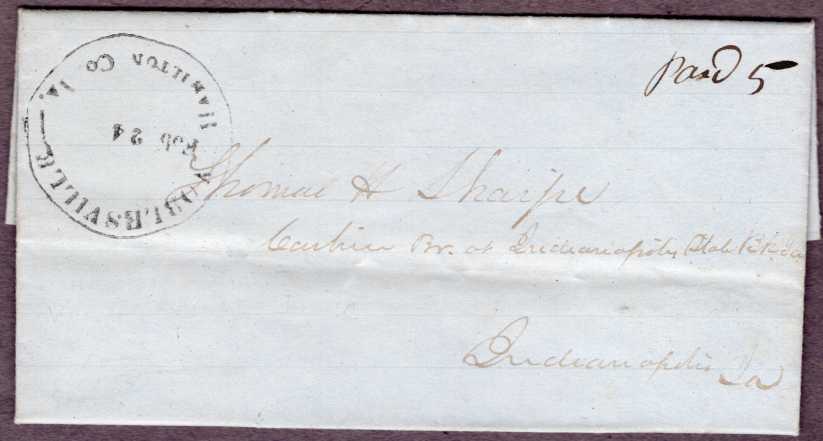 Paid 5
NOBLESVILLE
HAMILTON Co. IA.
Feb 24
Thomas H Sharpe
Cashier Br. at Indianapolis State Bk
Indianapolis Ia